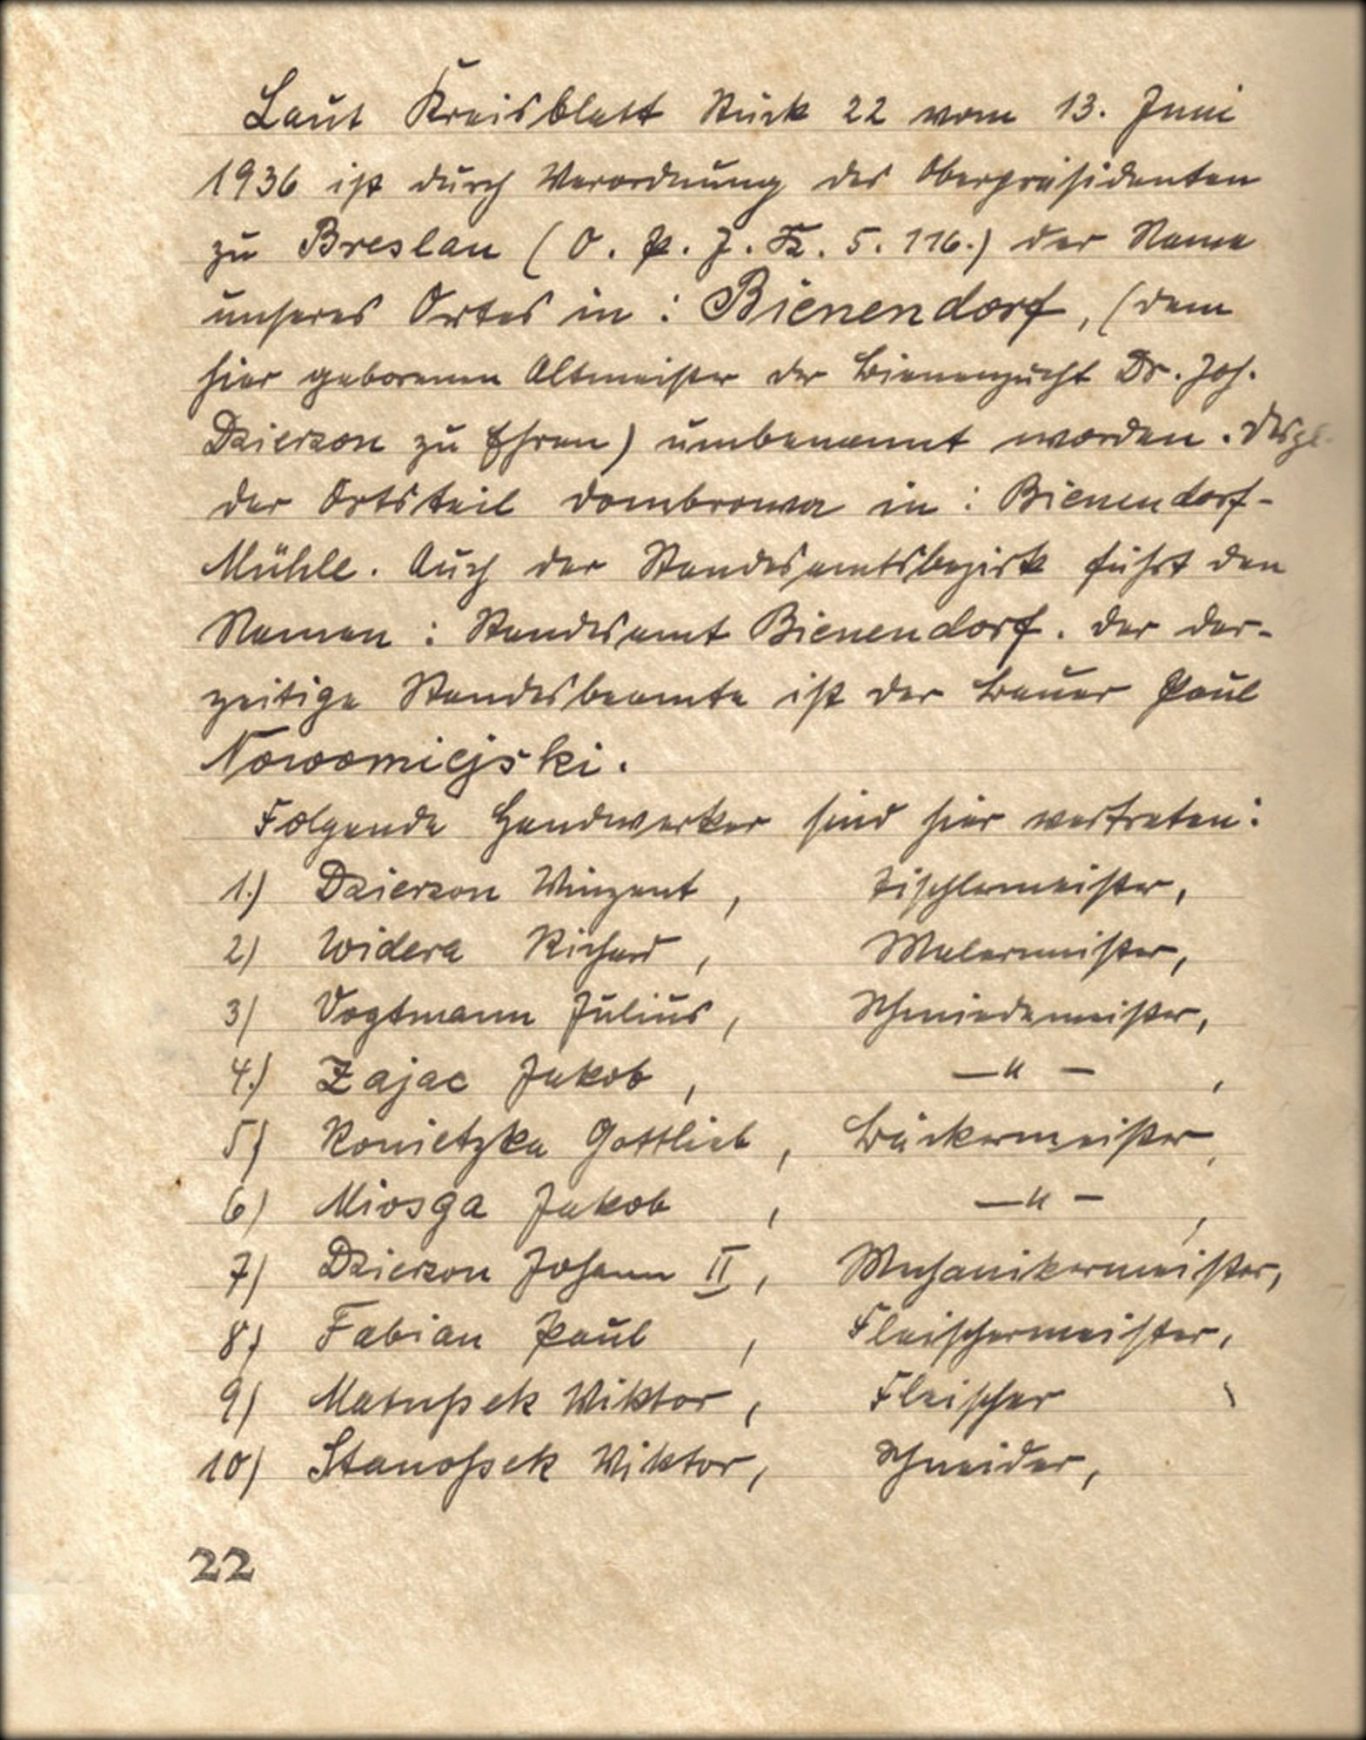 Laut Kreisblatt Stück 22 vom 13. Juni
1936 ist durch Verordnung des Oberpräsidenten
zu Breslau (O. P. J. Fz. 5. 116.) der Name
unseres Ortes in : Bienendorf, (dem
hier geborenen Altmeister der Bienenzucht Dr. Joh.
Dzierzon zu Ehren) umbenannt worden. Desgl.
der Ortsteil Dombrowa in : Bienendorf-
Mühle. Auch der Standesamtsbezirk führt den
Namen : Standesamt Bienendorf. Der der-
zeitige Standesbeamte ist der Bauer Paul
Nowomiejski.
Folgende Handwerker sind hier vertreten:
1.) Dzierzon Winzent, Tischlermeister,
2) Widera Richard, Malermeister,
3) Vogtmann Julius, Schmiedemeister,
4.) Zajac Jakob, —"—,
5) Konietzka Gottlieb, Bäckermeister,
6) Miosga Jakob, —"—,
7) Dzierzon Johann II, Mechanikermeister,
8) Fabian Paul, Fleischermeister,
9) Matußek Wiktor, Fleischer,
10) Stanoßek Wiktor, Schneider,
22